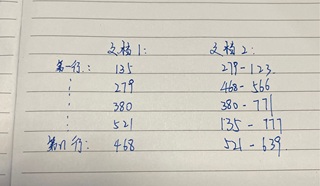 文档1： 文档2：
第一行： 135 279-123
279 468-566
380 380-771
521 135-777
第n行： 468 521-639